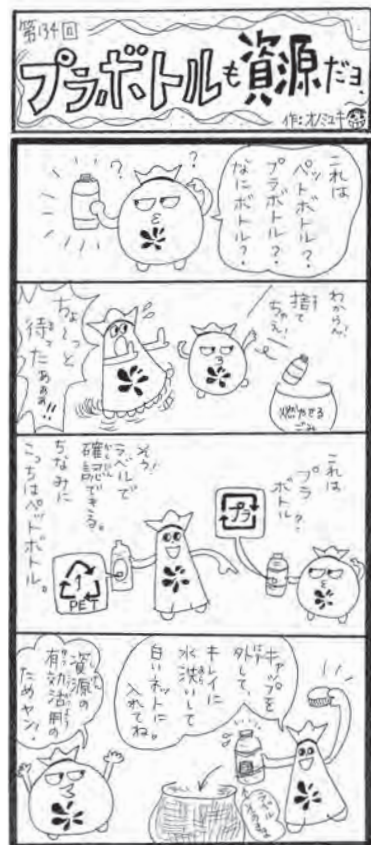 第134回
プラボトルも資源だヨ、
作:オノミユキ
これは
ペットボトル?
プラボトル?
なにボトル?
? ?
わからん!
捨て
ちゃえ!
燃やせる
ごみ
ちょ〜っと
待っ
たぁぁぁ!!
これは
プラ
ボトル
プラ
そう!
ラベルで
確認できる。
ちなみに
こっちはペットボトル。
1
PET
キャップを
外して、
キレイに
水洗いして
白いネットに
入れてね。
資源の
有効活用の
ためヤン!